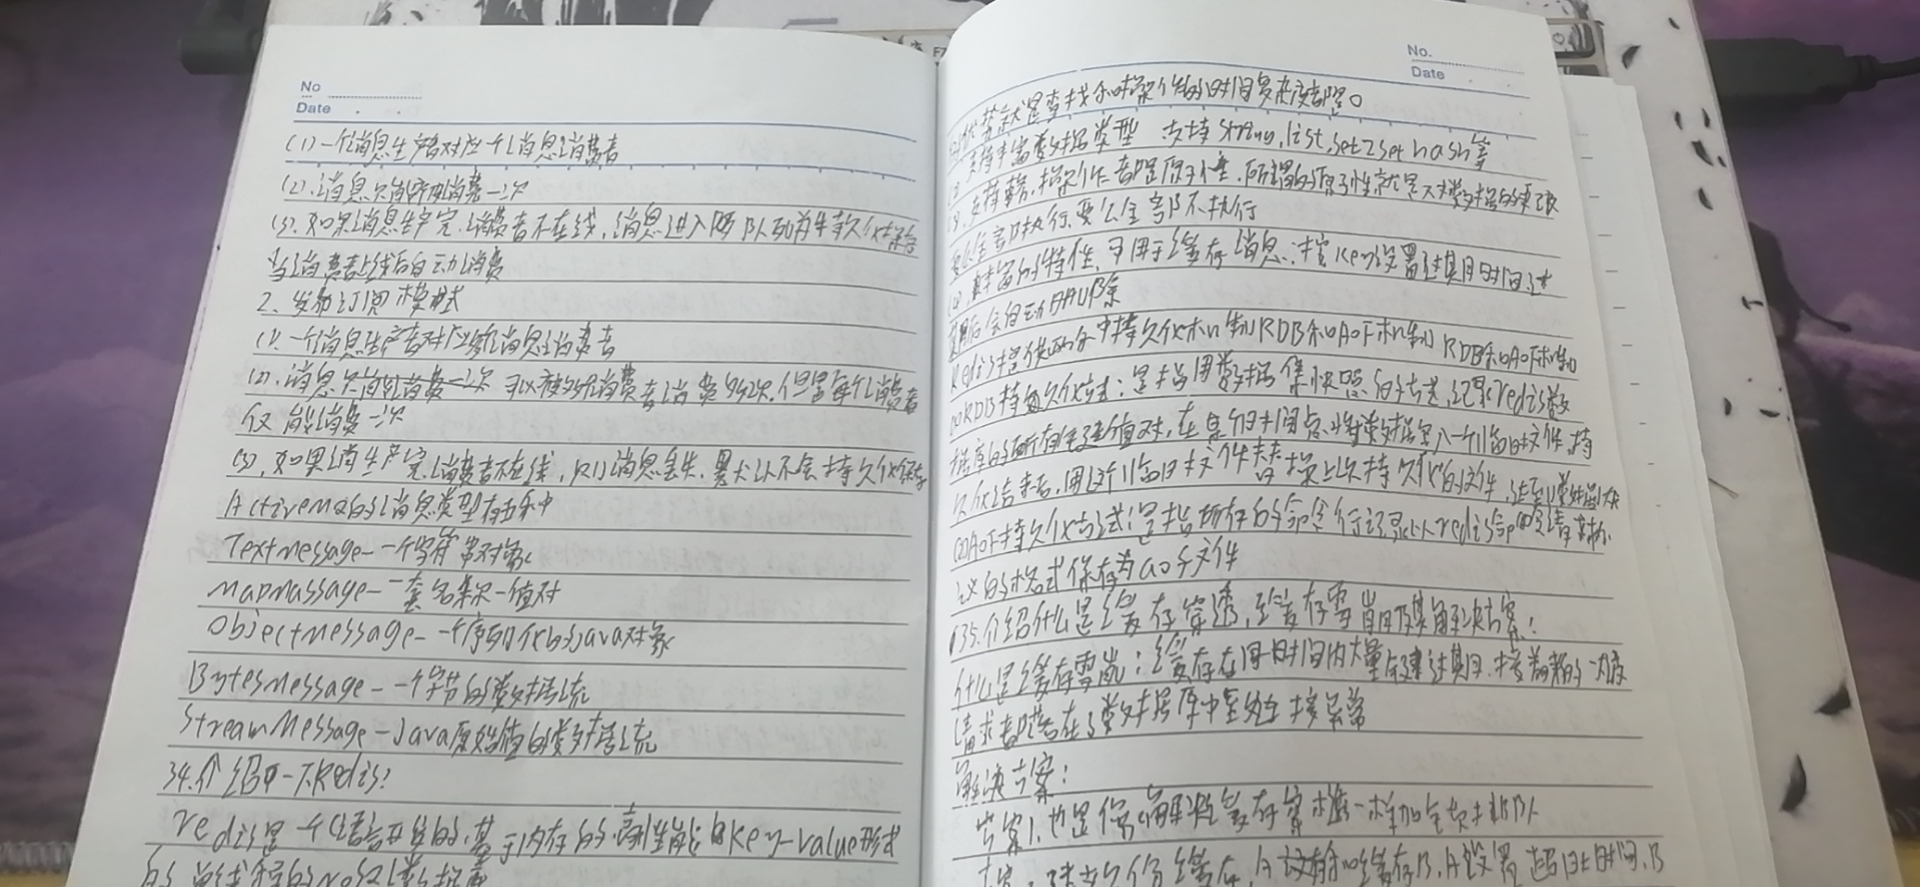 No
Date
(1)一个消息生产者对应一个消息消费者
(2).消息只能被消费一次
(3).如果消息生产完.消费者不在线,消息进入队列并持久化保存
当消费者上线后自动消费
2、发布订阅模式
(1).一个消息生产者对应多个消息消费者
(2).消息 可以被多个消费者消费多次.但是每个消费者
仅能消费一次
(3).如果消息生产完消费者不在线,则消息丢失.默认不会持久化保存
Activemq的消息类型有五种
TextMessage--一个字符串对象
MapMassage-一套名称-值对
ObjectMessage--一个序列化的Java对象
BytesMessage--一个字节的数据流
StreamMessage-Java原始值的数据流
34.介绍一下Redis?
redis是一个C语言开发的.基于内存的高性能的key-value形式
的单线程的NoSQL数据库
No.
Date
优势就是查找和操作的时间复杂度都是O
支持丰富数据类型 支持string,list,set,zset hash等
(3).支持事务.操作都是原子性.所谓的原子性就是对数据的更改
要么全部执行.要么全部不执行
(4).丰富的特性,可用于缓存消息,按key设置过期时间,过
期后会自动删除
Redis提供两个持久化机制RDB和AOF机制 RDB和AOF机制
(1)RDB持久化方式:是指用数据集快照的方式记录redis数
据库的所有键值对,在某个时间点将数据写入一个临时文件 持
久化结束后,用这个临时文件替换上次持久化的文件,达到数据恢复
(2)AOF持久化方式:是指所有的命令行记录以redis命令请求协
议的格式保存为aof文件
35.介绍什么是缓存穿透,缓存雪崩及其解决方案!
什么是缓存雪崩:缓存在同一时间内大量键过期.接着来的一大波
请求都落在了数据库中导致连接异常
解决方案:
方案1.也是像解决缓存穿透一样加锁排队
方案 建立备份缓存,A 缓存B,A设置超时时间,B